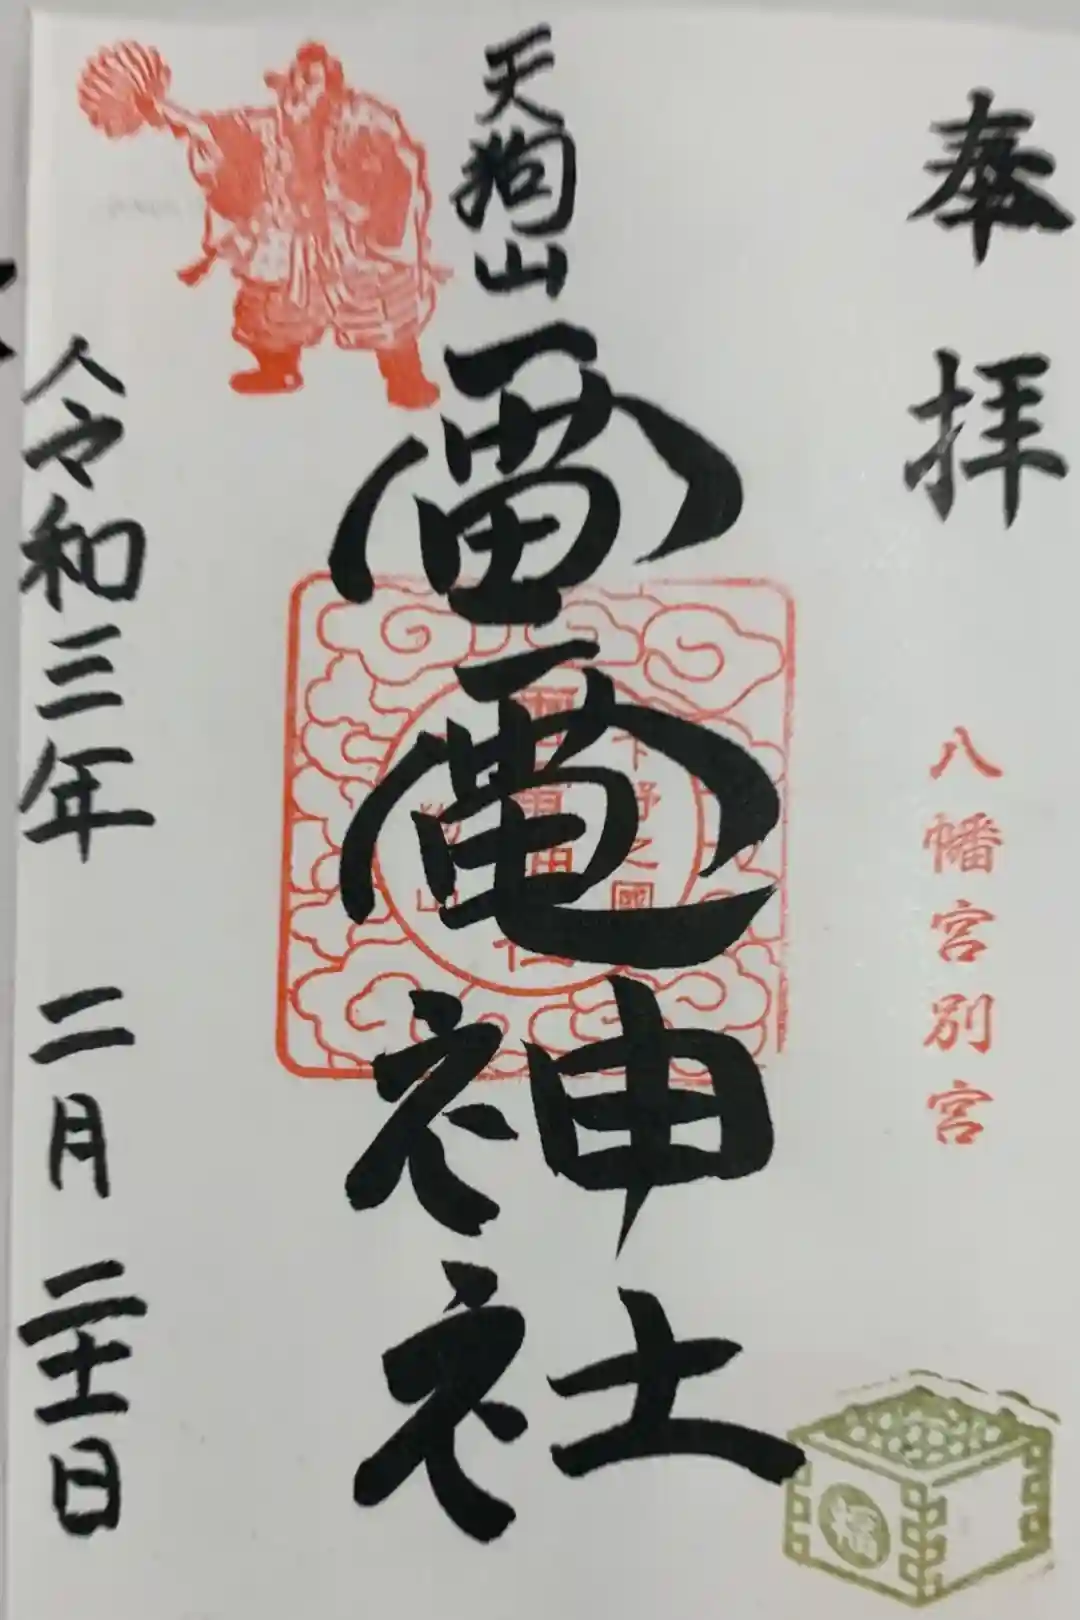 奉拝
八幡宮別宮
天狗山
雷電神社
下野之國
令和三年 二月 二十一日
福